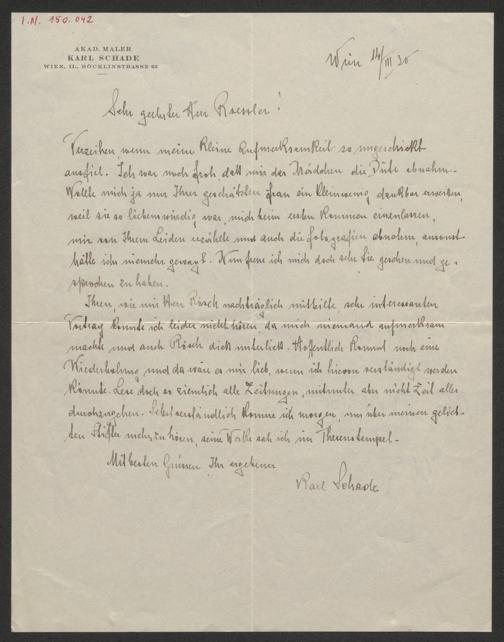 I.N. 150.042
AKAD. MALER
KARL SCHADE
WIEN, II., BÖCKLINSTRASSE 68
Wien 14/III 30
Sehr geehrter Herr Roessler!
Verzeihen, wenn meine kleine Aufmerksamkeit so ungeschickt
ausfiel. Ich war noch froh, daß mir das Mädchen die Düte abnahm.
Wollte mich ja nur Ihrer geschätzten Frau ein kleinwenig dankbar erweisen,
weil sie so liebenswürdig war, mich beim ersten Kommen einzulassen,
mir von Ihrem Leiden erzählte und auch die Fotografien abnahm, ansonst
hätte ich niemehr gewagt. Nun freue ich mich doch sehr Sie gesehen und ge-
sprochen zu haben.
Ihren, wie mir Herr Rösch nachträglich mitteilte, sehr interessanten
Vortrag konnte ich leider nicht hören, da mich niemand aufmerksam
machte und auch Rösch dies unterließ. Hoffentlich kommt noch eine
Wiederholung und da wäre es mir lieb, wenn ich hievon verständigt werden
könnte. Lese doch so ziemlich alle Zeitungen, mitunter aber nicht Zeit alles
durchzugehen. Selbstverständlich komme ich morgen, um über meinen gelieb-
ten Stifter mehr zu hören, seine Werke sah ich im
Mit besten Grüssen Ihr ergebener
Karl Schade